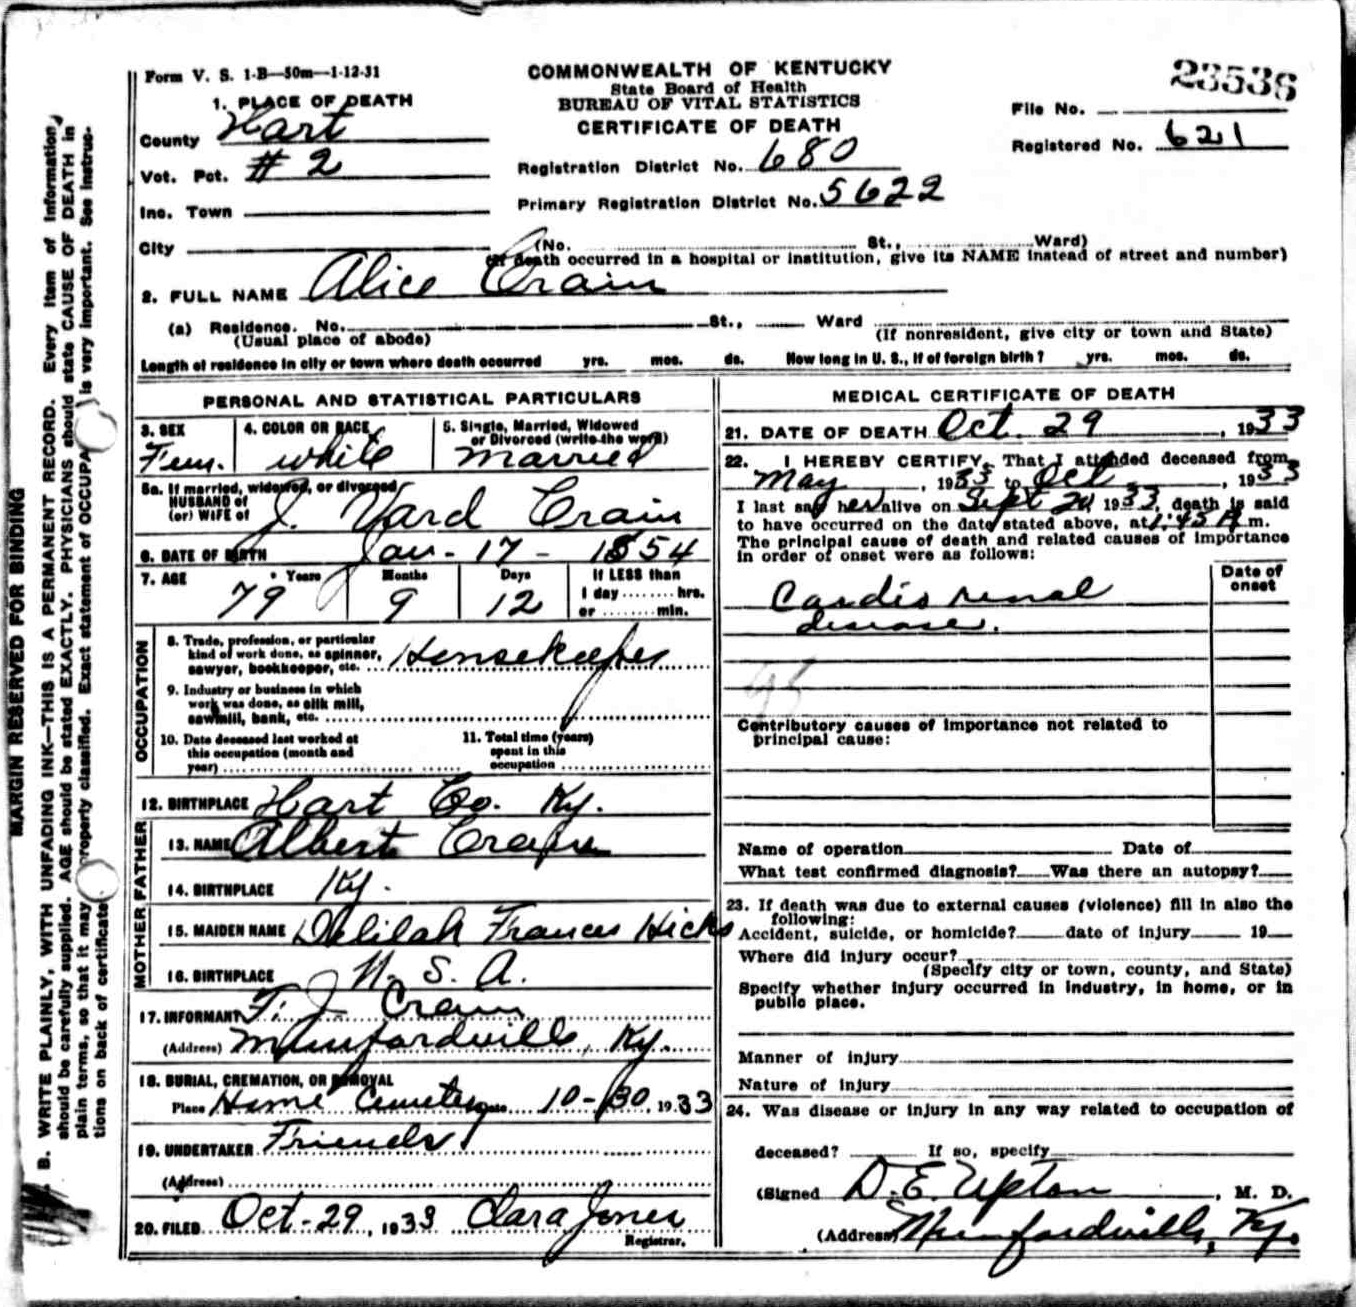 Form V. S. 1-B—50m—1-12-31
COMMONWEALTH OF KENTUCKY
State Board of Health
BUREAU OF VITAL STATISTICS
CERTIFICATE OF DEATH
23536
File No.
Registered No. 621
1. PLACE OF DEATH
County Hart
Vot. Pct. #2
Inc. Town
City
Registration District No. 680
Primary Registration District No. 5622
(No. St., Ward)
(If death occurred in a hospital or institution, give its NAME instead of street and number)
2. FULL NAME Alice Crain
(a) Residence. No. St., Ward
(Usual place of abode)
(If nonresident, give city or town and State)
Length of residence in city or town where death occurred yrs. mos. ds. How long in U. S., if of foreign birth? yrs. mos. ds.
PERSONAL AND STATISTICAL PARTICULARS
3. SEX 4. COLOR OR RACE 5. Single, Married, Widowed
or Divorced (write the word)
Fem. white Married
5a. If married, widowed, or divorced
HUSBAND of
(or) WIFE of J. Yard Crain
6. DATE OF BIRTH Jan - 17 - 1854
7. AGE Years Months Days If LESS than
1 day ........ hrs.
or ........ min.
79 9 12
OCCUPATION
8. Trade, profession, or particular
kind of work done, as spinner,
sawyer, bookkeeper, etc. Housekeeper
9. Industry or business in which
work was done, as silk mill,
sawmill, bank, etc.
10. Date deceased last worked at
this occupation (month and
year)
11. Total time (years)
spent in this
occupation
12. BIRTHPLACE Hart Co. Ky.
FATHER
13. NAME Albert Crain
14. BIRTHPLACE Ky.
MOTHER
15. MAIDEN NAME Delilah Frances Hicks
16. BIRTHPLACE U. S. A.
17. INFORMANT T. J. Crain
(Address) Munfordville, Ky.
18. BURIAL, CREMATION, OR REMOVAL
Place Home Cemetery Date 10-30, 1933
19. UNDERTAKER Friends
(Address)
20. FILED Oct-29, 1933 Clara Jones
Registrar.
MEDICAL CERTIFICATE OF DEATH
21. DATE OF DEATH Oct. 29, 1933
22. I HEREBY CERTIFY, That I attended deceased from
May, 1933 to Oct, 1933
I last saw her alive on Sept 20, 1933, death is said
to have occurred on the date stated above, at 1:45 A m.
The principal cause of death and related causes of importance
in order of onset were as follows:
Date of
onset
Cardio renal
disease.
Contributory causes of importance not related to
principal cause:
Name of operation Date of
What test confirmed diagnosis? Was there an autopsy?
23. If death was due to external causes (violence) fill in also the
following:
Accident, suicide, or homicide? date of injury 19
Where did injury occur?
(Specify city or town, county, and State)
Specify whether injury occurred in industry, in home, or in
public place.
Manner of injury
Nature of injury
24. Was disease or injury in any way related to occupation of
deceased? If so, specify
(Signed D. E. Upton, M. D.
(Address) Munfordville, Ky.
MARGIN RESERVED FOR BINDING
B. WRITE PLAINLY, WITH UNFADING INK—THIS IS A PERMANENT RECORD. Every item of information
should be carefully supplied. AGE should be stated EXACTLY. PHYSICIANS should state CAUSE OF DEATH in
plain terms, so that it may properly classified. Exact statement of OCCUPA is very important. See instruc-
tions on back of certificate